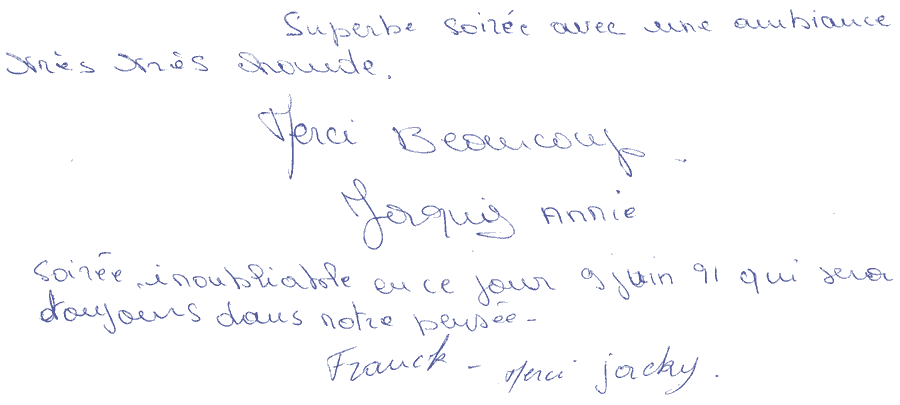 Superbe soirée avec une ambiance
très très chaude.
Merci Beaucoup.
Annie
Soirée inoubliable en ce jour 9 juin 91 qui sera
toujours dans notre pensée -
Franck - Merci jacky.